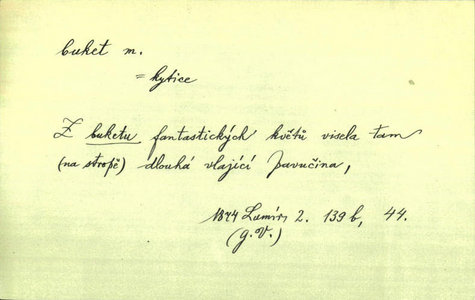 buket m.
= kytice
Z buketu fantastických květů visela tam
(na stropě) dlouhá vlající pavučina,
1874 Lumír, 2. 139 b, 44.
(J. V.)